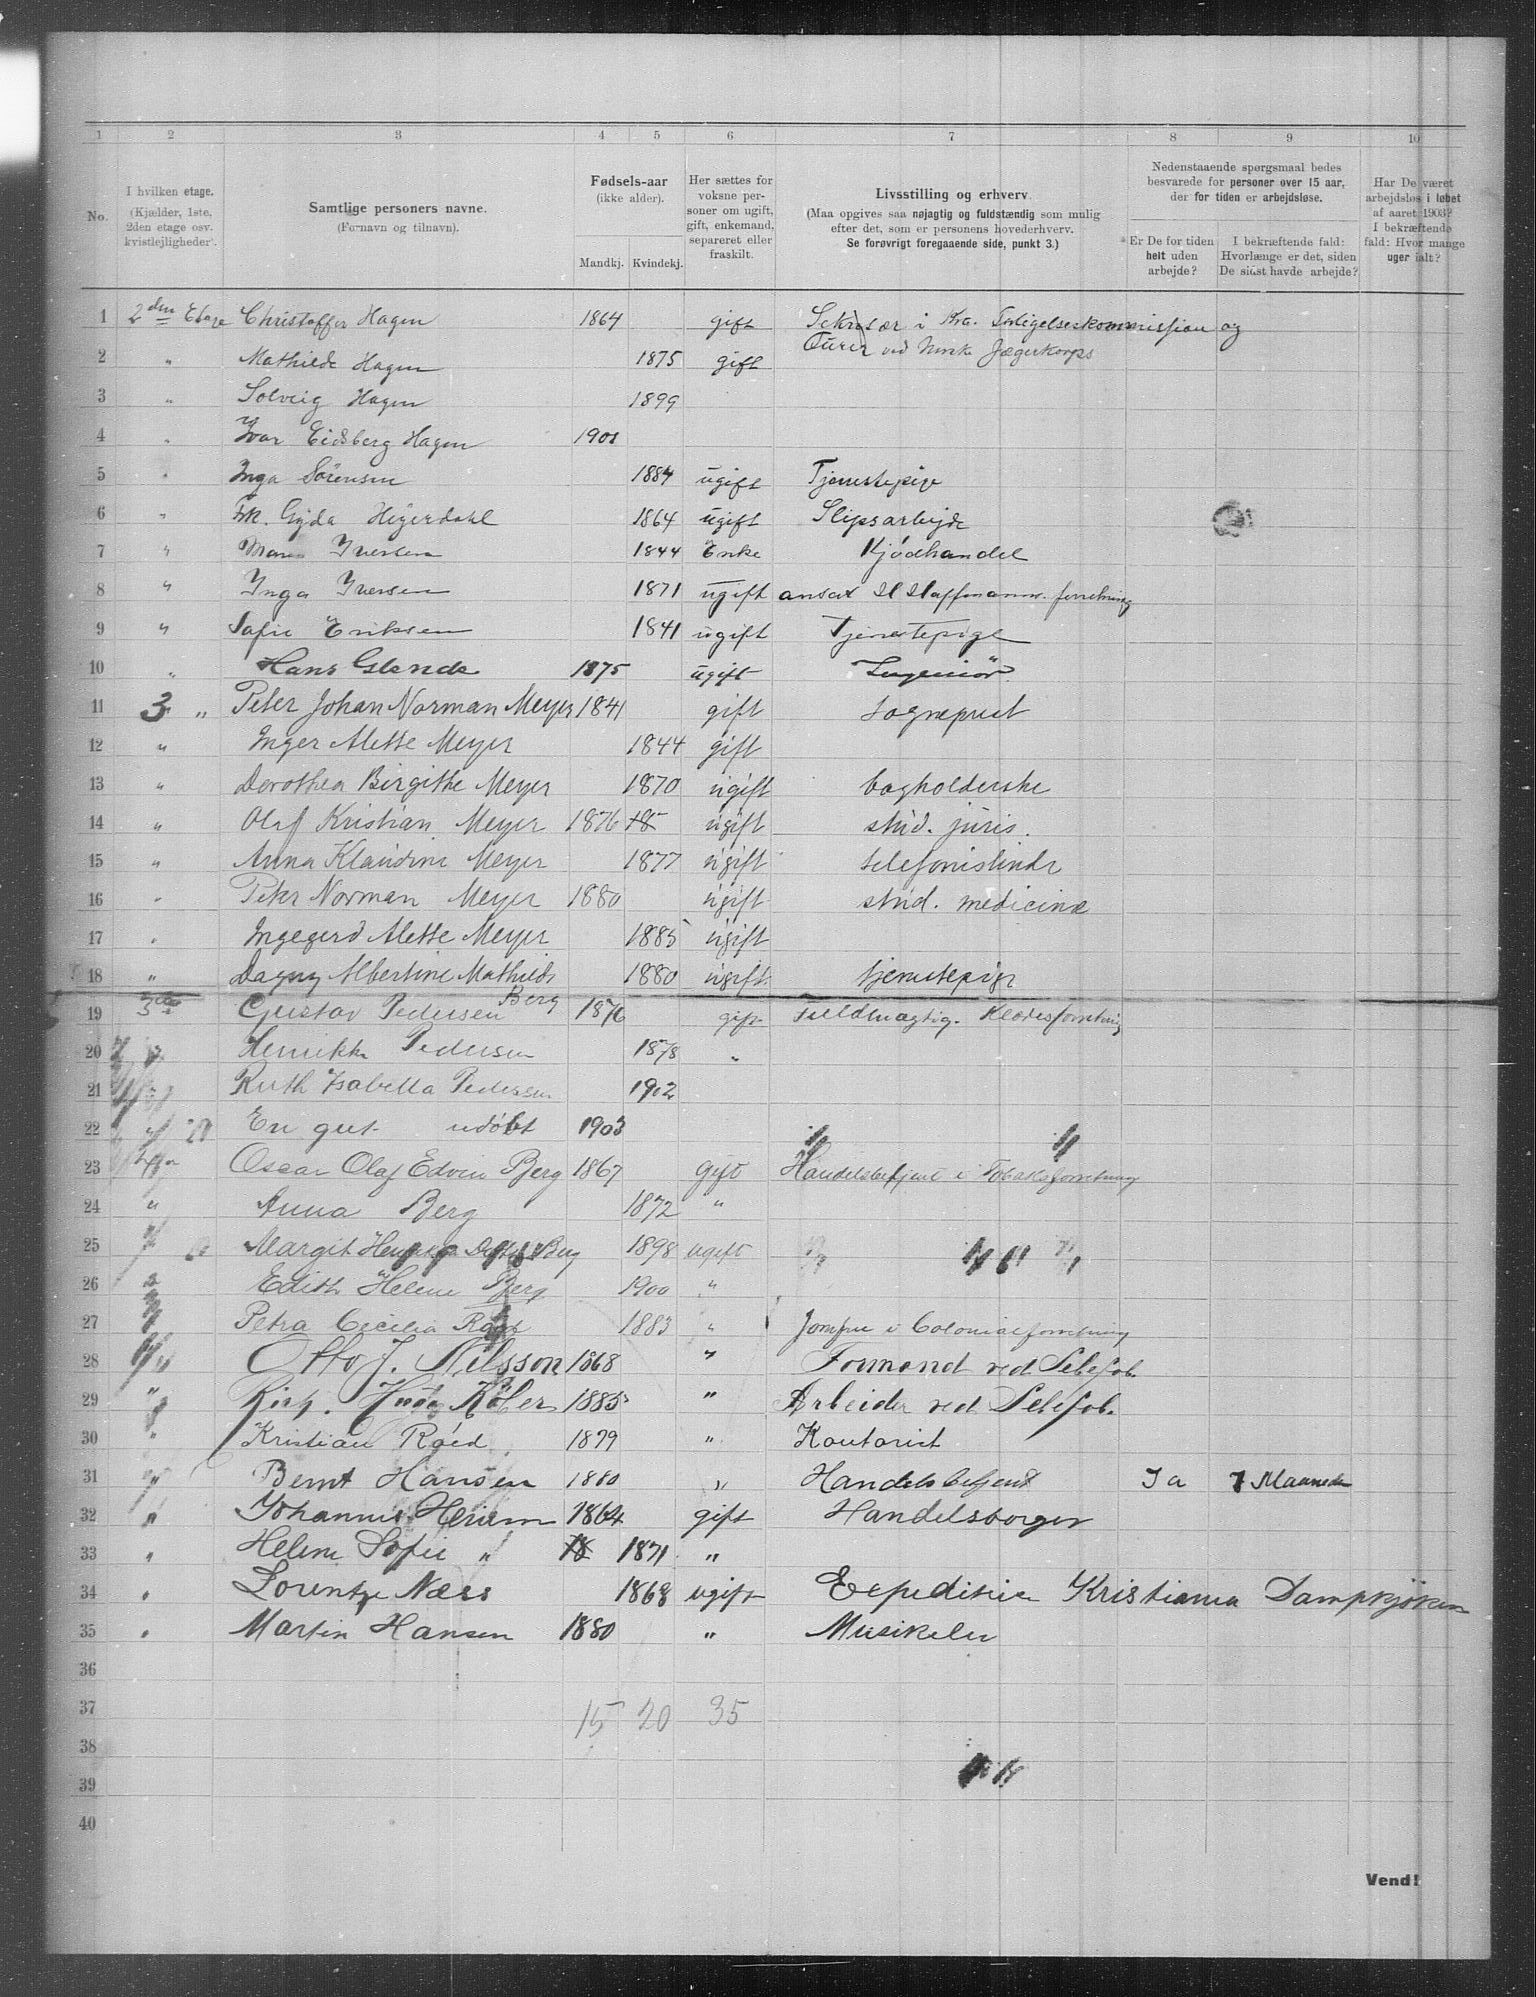 1 2 3 4 5 6 7 8 9 10
No.
I hvilken etage.
(Kjælder, 1ste,
2den etage osv.
kvistlejligheder).
Samtlige personers navne.
(Fornavn og tilnavn).
Fødsels-aar
(ikke alder).
Mandkj. Kvindekj.
Her sættes for
voksne per-
soner om ugift,
gift, enkemand,
separeret eller
fraskilt.
Livsstilling og erhverv.
(Maa opgives saa nøjagtig og fuldstændig som mulig
efter det, som er personens hovederhverv.
Se forøvrigt foregaaende side, punkt 3.)
Nedenstaaende spørgsmaal bedes
besvarede for personer over 15 aar,
der for tiden er arbejdsløse.
Er De for tiden
helt uden
arbejde?
I bekræftende fald:
Hvorlænge er det, siden
De sidst havde arbejde?
Har De været
arbejdsløs i løbet
af aaret 1903?
I bekræftende
fald: Hvor mange
uger ialt?
1 2den Etage Christoffer Hagen 1864 gift Sekretær i Kra. Forligelseskommission og
2 " Mathilde Hagen 1875 gift Furer ved Norske Jægerkorps
3 " Solveig Hagen 1899
4 " Ivar Eidsberg Hagen 1901
5 " Inga Sörensen 1884 ugift Tjenestepige
6 " Frk. Gyda Heyerdahl 1864 ugift Slipsarbejde
7 " Iversen 1844 Enke Kjödhandel
8 " Inga Iversen 1871 ugift ansat forretning
9 " Sofie Eriksen 1841 ugift Tjenestepige
10 " Hans Glende 1875 ugift Ingeniör
11 3 " Peter Johan Norman Meyer 1841 gift Sogneprest
12 " Inger Alette Meyer 1844 gift
13 " Dorothea Birgithe Meyer 1870 ugift bogholderske
14 " Olaf Kristian Meyer 1876 18 ugift stud. juris.
15 " Anna Klaudine Meyer 1877 ugift telefonistinde
16 " Peter Norman Meyer 1880 ugift stud. medicinæ
17 " Ingegerd Alette Meyer 1885 ugift
18 " Dagny Albertine Mathilde Berg 1880 ugift tjenestepige
19 3die Gustav Pedersen 1876 gift Fuldmægtig. Klædesforretning
20 Henrikke Pedersen 1878 "
21 Ruth Isabella Pedersen 1902
22 En gut udöbt 1903
23 Oscar Olaf Edvin Berg 1867 gift Handelsbetjent i Tobaksforretning
24 " Anna Berg 1872 "
25 Margit Berg 1898 ugift
26 Edith Helene Berg 1900 "
27 Petra Cecilia 1883 " Jomfru i Colonialforretning
28 Otto J. Nilsson 1868 " Formand ved Sebefab.
29 " 1885 " Arbeider ved Sebefab.
30 " Kristian Röed 1879 " Kontorist
31 " Bernt Hansen 1880 " Handelsbetjent Ja 7 Maaneder
32 " Johannes 1864 gift Handelsborger
33 " Helene Sofie " 18 1871 "
34 " Lorentze Næss 1868 ugift Expeditrice Kristiania Dampkjöken
35 " Martin Hansen 1880 " Musikeler
36
37 15 20 35
38
39
40
Vend!